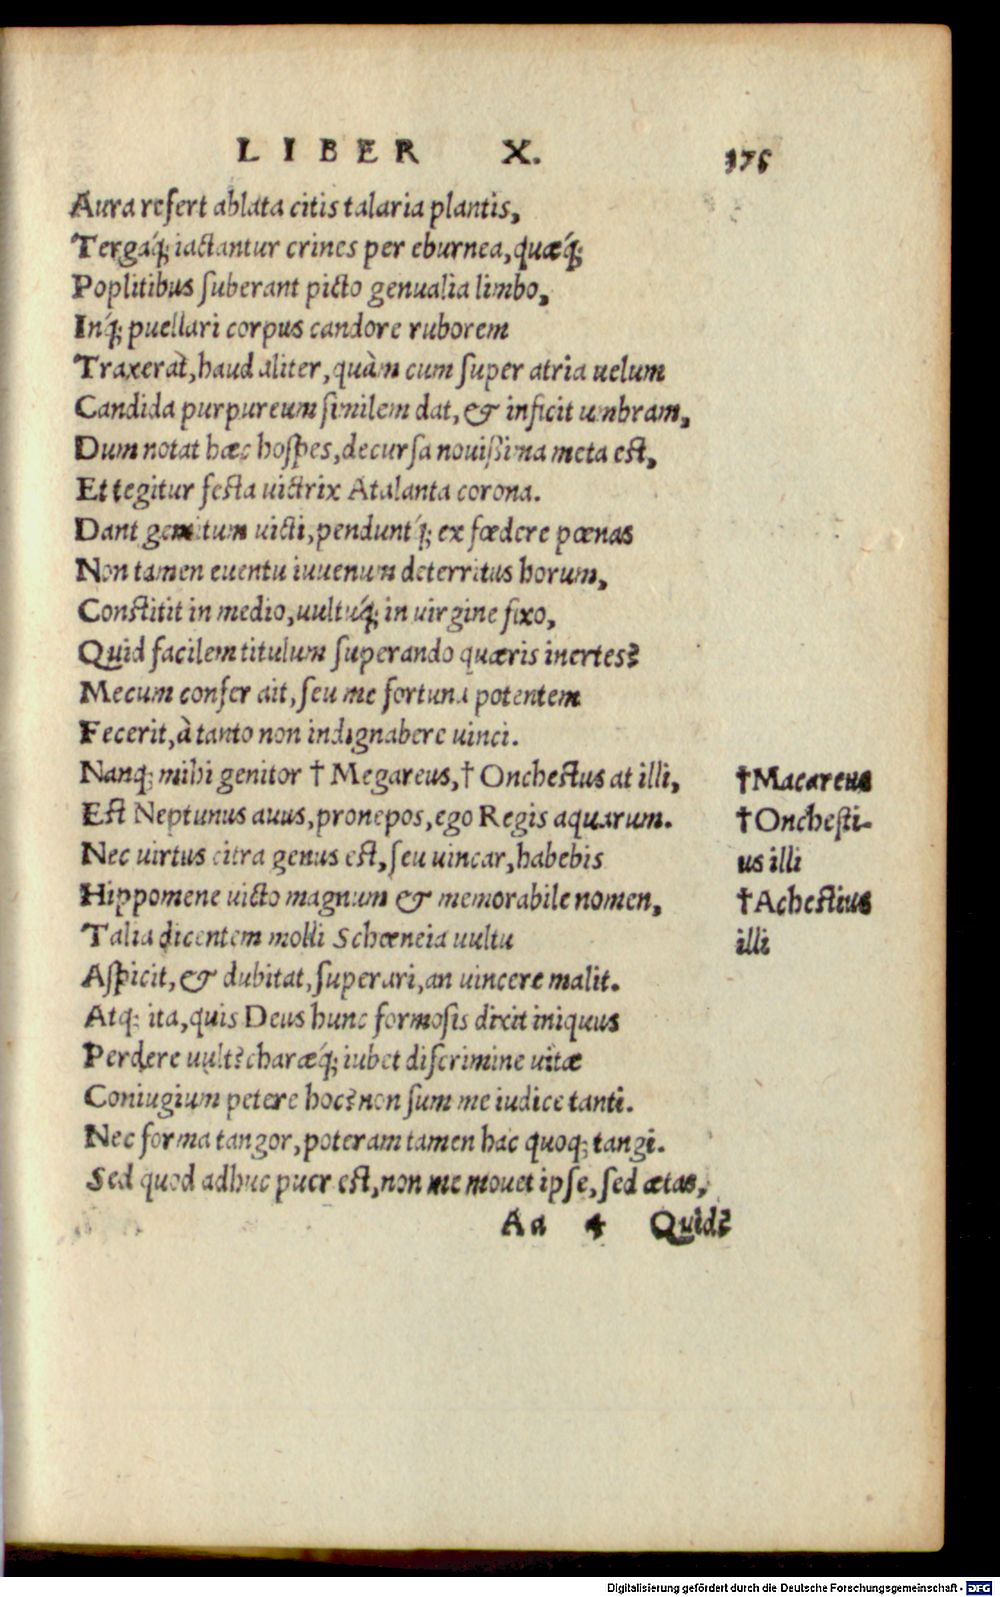 LIBER X. 375
Aura refert ablata citis talaria plantis,
Tergaq́; iactantur crines per eburnea, quæq́;
Poplitibus suberant picto genualia limbo,
Inq́; puellari corpus candore ruborem
Traxerat, haud aliter, quàm cum super atria uelum
Candida purpureum similem dat, & inficit umbram,
Dum notat hæc hospes, decursa nouißima meta est,
Et tegitur festa uictrix Atalanta corona.
Dant gemitum uicti, penduntq́; ex fœdere pœnas
Non tamen euentu iuuenum deterritus horum,
Constitit in medio, uultuq́; in uirgine fixo,
Quid facilem titulum superando quæris inertes?
Mecum confer ait, seu me fortuna potentem
Fecerit, à tanto non indignabere uinci.
Nanq; mihi genitor † Megareus, † Onchestus at illi,
Est Neptunus auus, pronepos, ego Regis aquarum.
Nec uirtus citra genus est, seu uincar, habebis
Hippomene uicto magnum & memorabile nomen,
Talia dicentem molli Schœneia uultu
Aspicit, & dubitat, superari, an uincere malit.
Atq; ita, quis Deus hunc formosis dixit iniquus
Perdere uult? charæq́; iubet discrimine uitæ
Coniugium petere hoc? non sum me iudice tanti.
Nec forma tangor, poteram tamen hac quoq; tangi.
Sed quod adhuc puer est, non me mouet ipse, sed ætas,
Aa 4 Quid?
†Macareus
†Onchesti-
us illi
†Achestius
illi
Digitalisierung gefördert durch die Deutsche Forschungsgemeinschaft - DFG